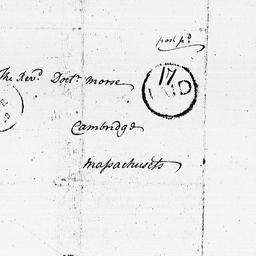 post pd
The Revd. Doctr. Morse
17
Cambridge
Massachusets